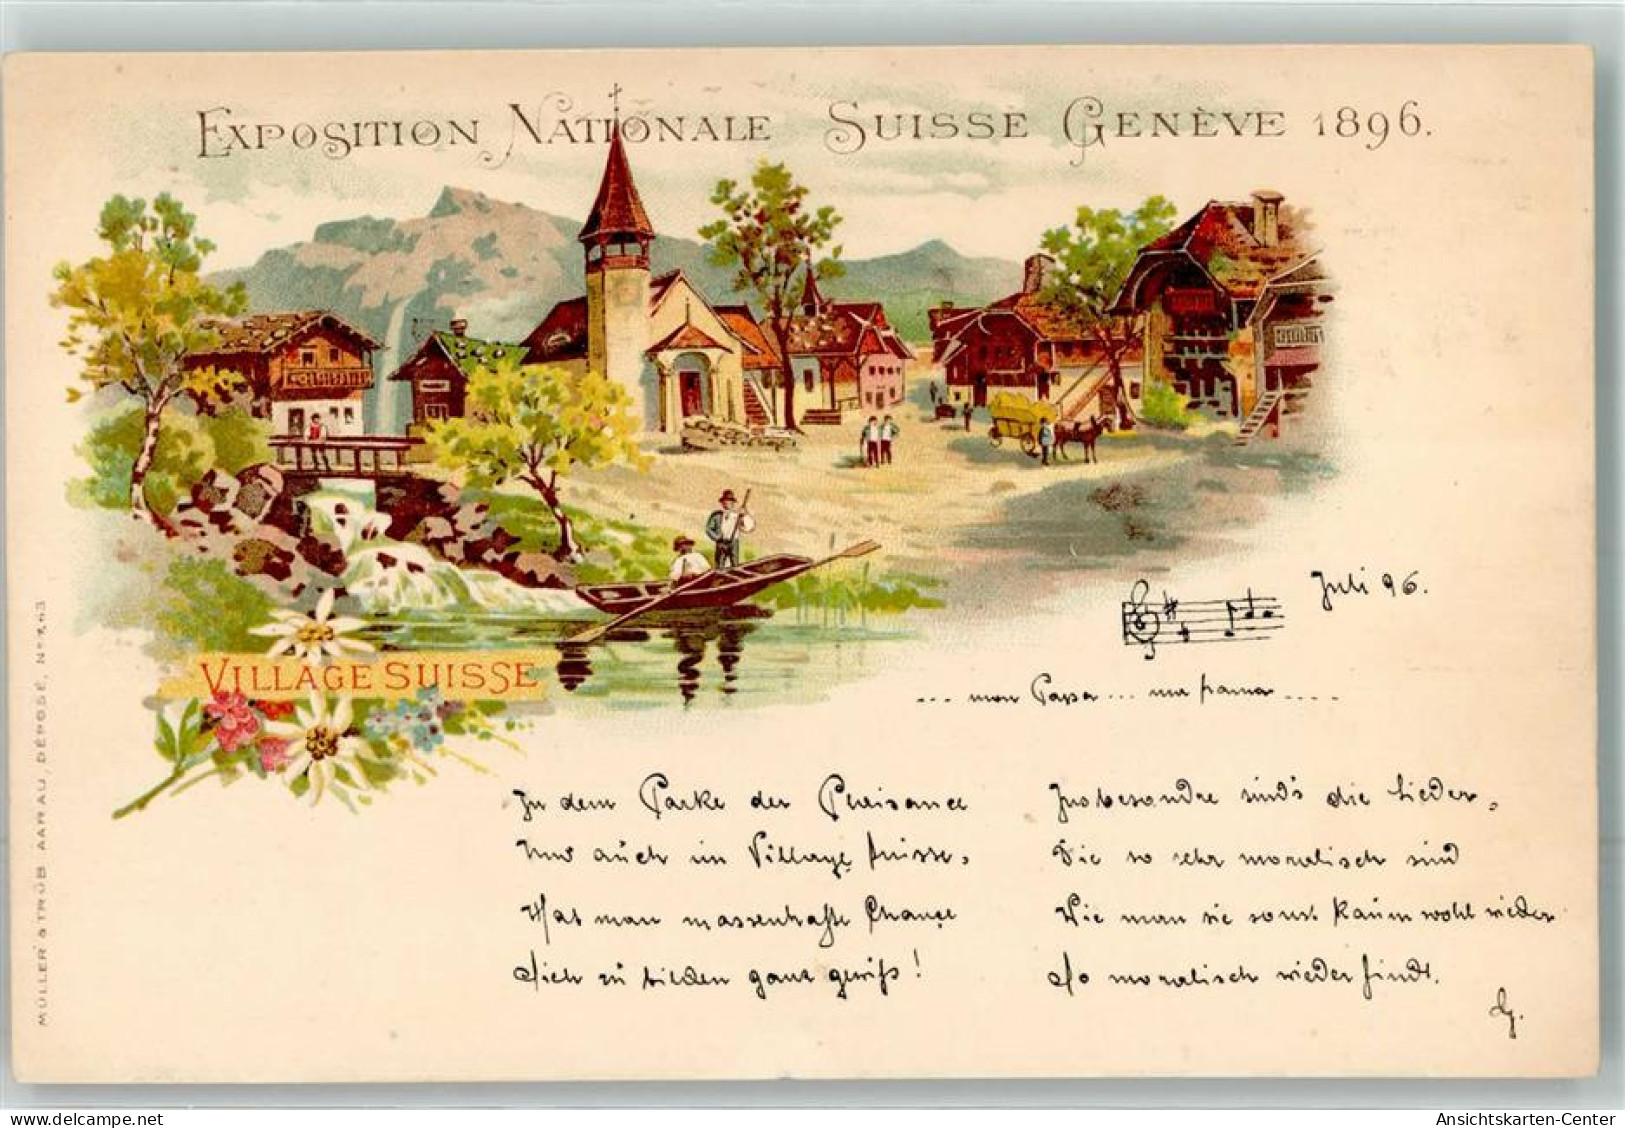 EXPOSITION NATIONALE SUISSE GENÈVE 1896.
VILLAGE SUISSE
MÜLLER & TRÜB AARAU, DÉPOSÉ, Nº
Juli 96.
... mon Papa ... ma
In dem Parke der Plaisance
Und auch im Village suisse,
Hat man massenhafte Chance
Sich zu bilden ganz gewiß!
Insbesondre sind's die Lieder,
Die so sehr moralisch sind
Wie man sie sonst kaum wohl wieder
So moralisch wiederfindt.
G.
Ansichtskarten-Center